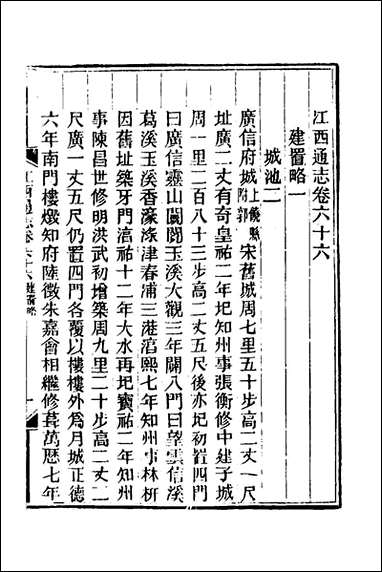 江西通志卷六十六
建置略一
城池二
廣信府城上饒縣附郭宋舊城周七里五十步高二丈一尺
址廣二丈有奇皇祐二年圮知州事張衡修中建子城
周一里二百八十三步高二丈五尺後亦圮初置四門
曰廣信靈山闤闠玉溪大觀三年闢八門曰望雲信溪
葛溪玉溪香濠漁津春浦三港淳熙七年知州事林枅
因舊址築牙門淳祐十二年大水再圮寶祐二年知州
事陳昌世修明洪武初增築周九里二十步高二丈二
尺廣一丈五尺仍置四門各覆以樓樓外爲月城正德
六年南門樓燬知府陸徵朱嘉會相繼修葺萬歷七年
江西通志卷六十六 建置略 一